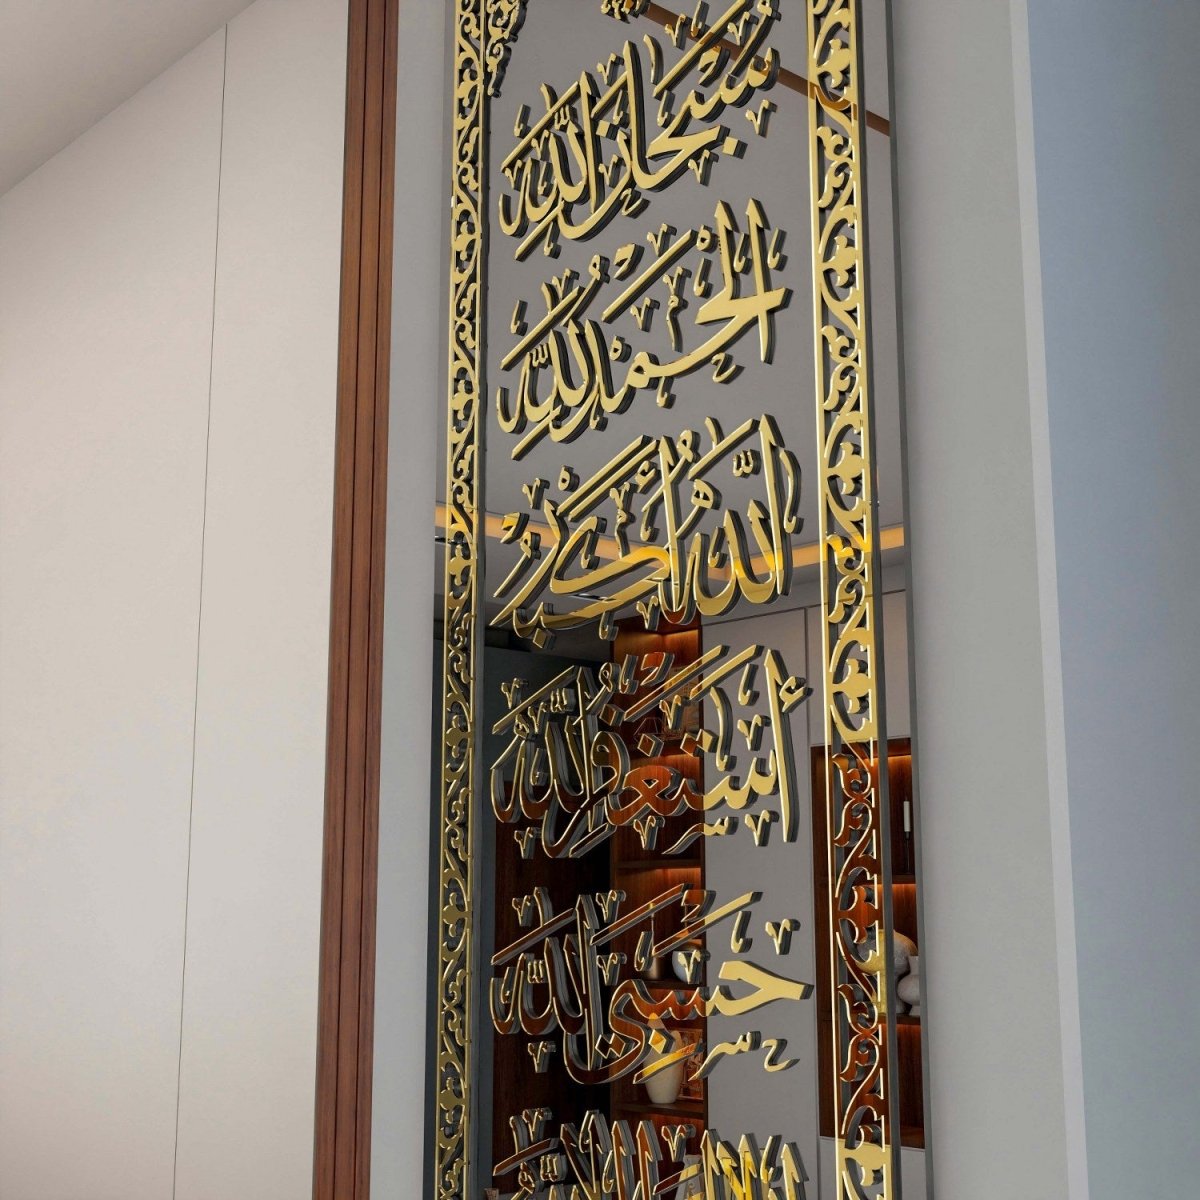 سُبْحَانَ اللَّهِ
الْحَمْدُ لِلَّهِ
اللَّهُ أَكْبَرُ
أَسْتَغْفِرُ اللَّهَ
حَسْبِيَ اللَّهُ